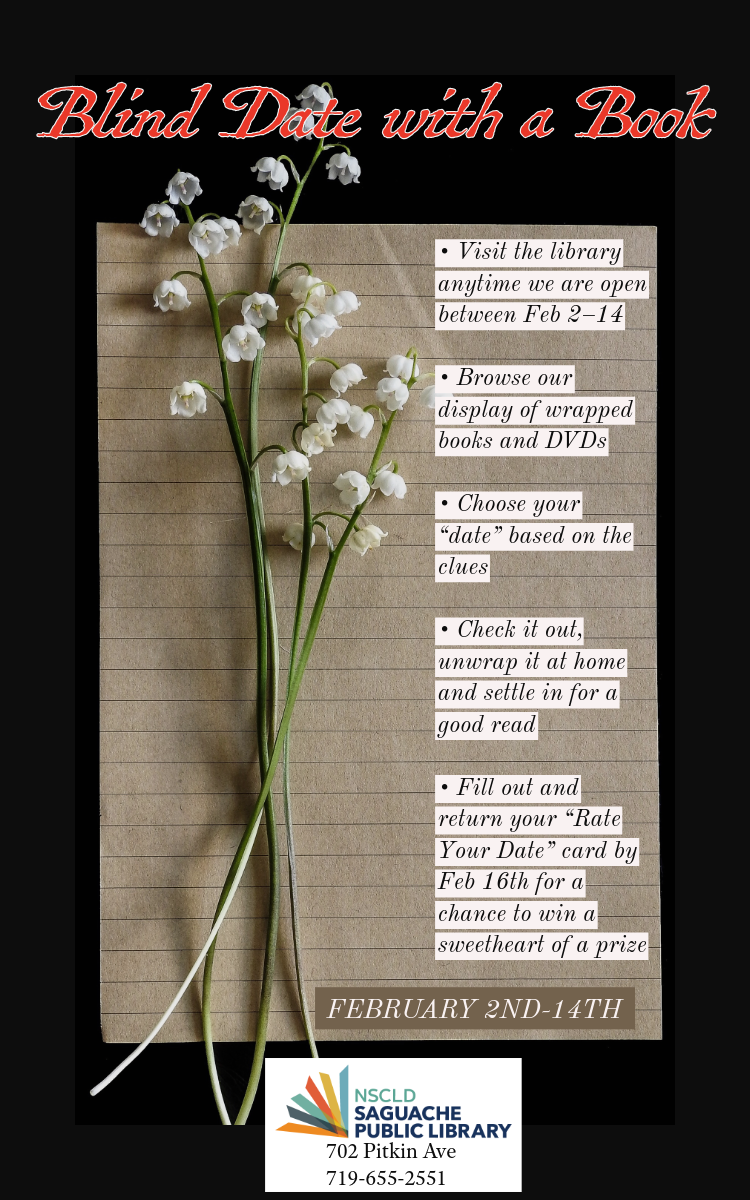 Blind Date with a Book
• Visit the library
anytime we are open
between Feb 2–14
• Browse our
display of wrapped
books and DVDs
• Choose your
“date” based on the
clues
• Check it out,
unwrap it at home
and settle in for a
good read
• Fill out and
return your “Rate
Your Date” card by
Feb 16th for a
chance to win a
sweetheart of a prize
FEBRUARY 2ND-14TH
NSCLD
SAGUACHE
PUBLIC LIBRARY
702 Pitkin Ave
719-655-2551